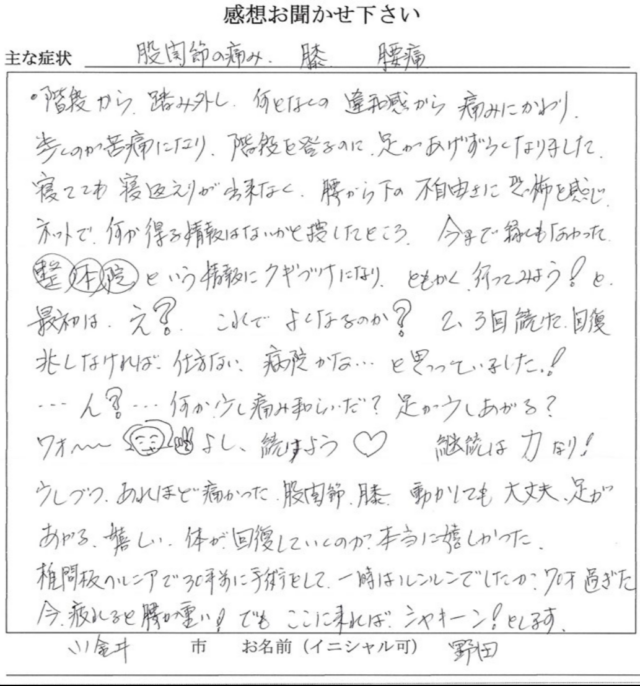 感想お聞かせ下さい
主な症状 股関節の痛み. 膝 腰痛
・階段から、踏み外し、何となくの違和感から痛みにかわり、
歩くのが苦痛になり、階段を登るのに、足があげずらくなりました。
寝てても寝返えりが出来なく、腰から下の不自由さに恐怖を感じ、
ネットで、何か得る情報はないかと捜したところ、今まで縁もなかった
整体院という情報にクギづけになり、ともかく、行ってみよう!と、
最初は、え? これでよくなるのか? 2、3回続けた、回復
兆しなければ、仕方ない、病院かな…と思っていました!
…ん?…何か少し痛み和らいだ?足が少しあがる?
ワオ〜〜 よし、続けよう♡ 継続は力なり!
少しづつ、あれほど痛かった、股関節、膝、動かしても大丈夫、足が
あがる、嬉しい、体が回復していくのが、本当に嬉しかった。
椎間板ヘルニアで30年前に手術をして、一時はルンルンでしたが、70才過ぎた
今、疲れると腰が重い! でも ここに来れば、シャキーン!とします。
小金井 市 お名前(イニシャル可) 野田